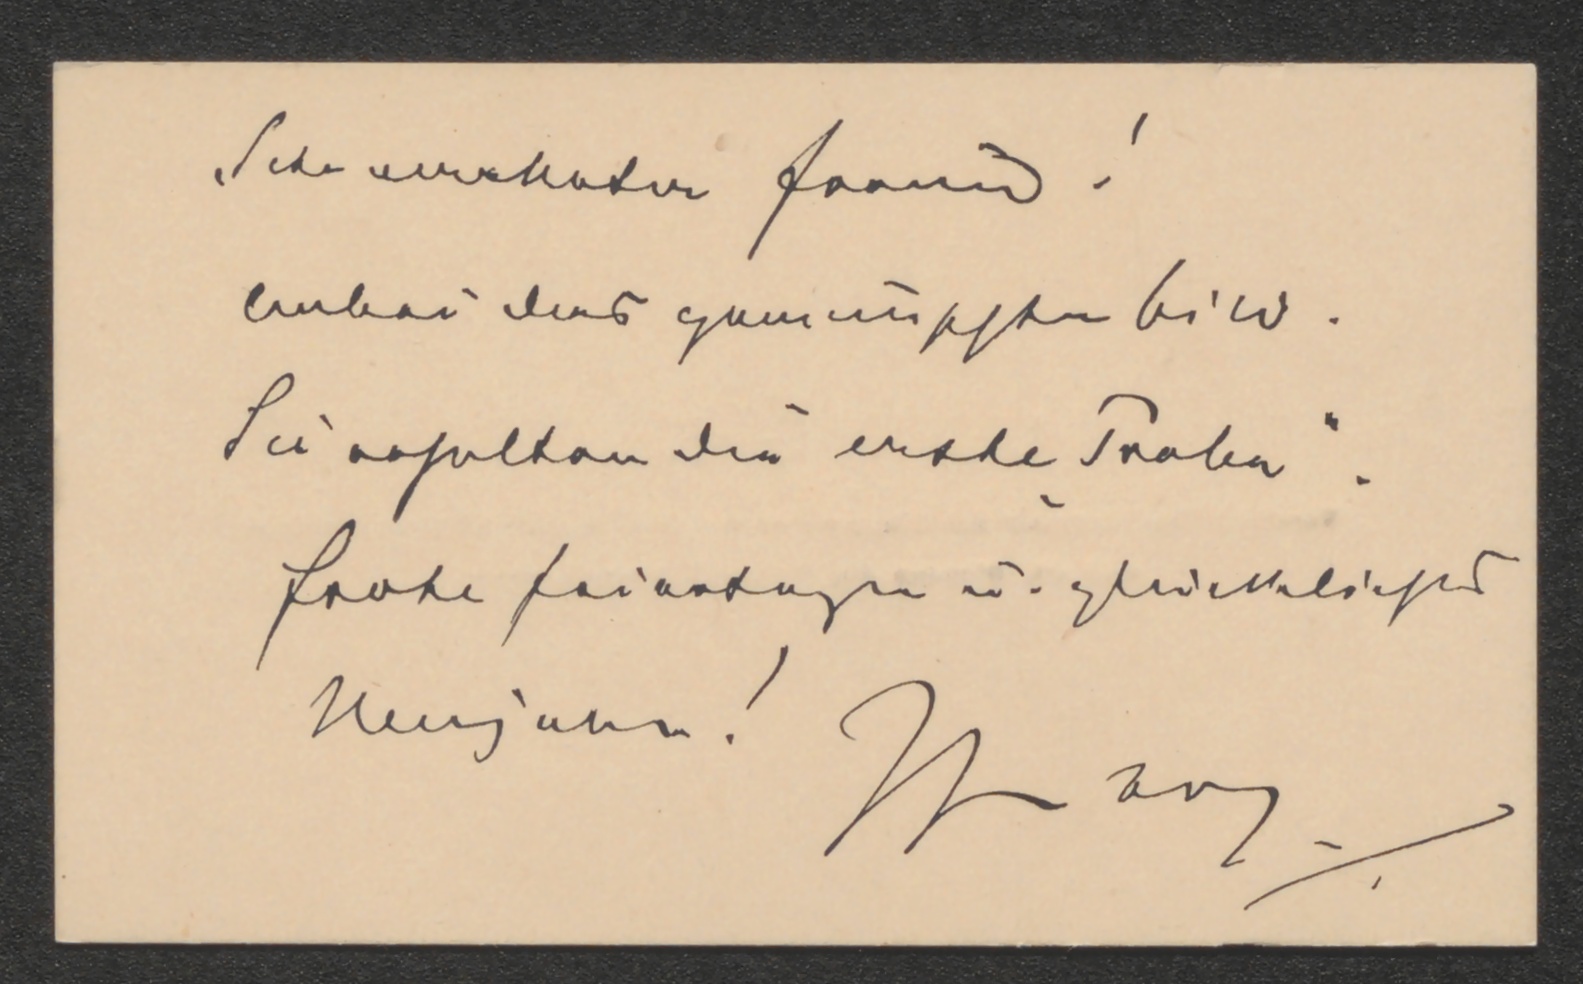 Sehr verehrter Freund!
anbei das gewünschte Bild.
Sie erhalten die „erste Probe“.
Frohe Feiertage u. glückliches
Neujahr!